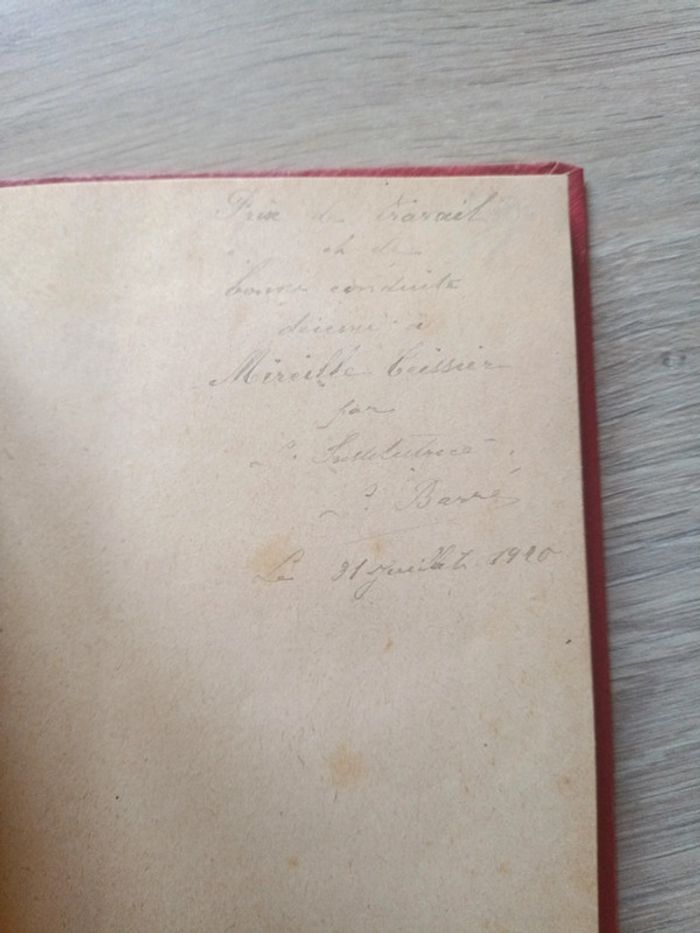 Prix de travail
et de
bonne conduite
décerné à
Mireille Teissier
par
L' Institutrice
L. Barré
Le 31 juillet 1920